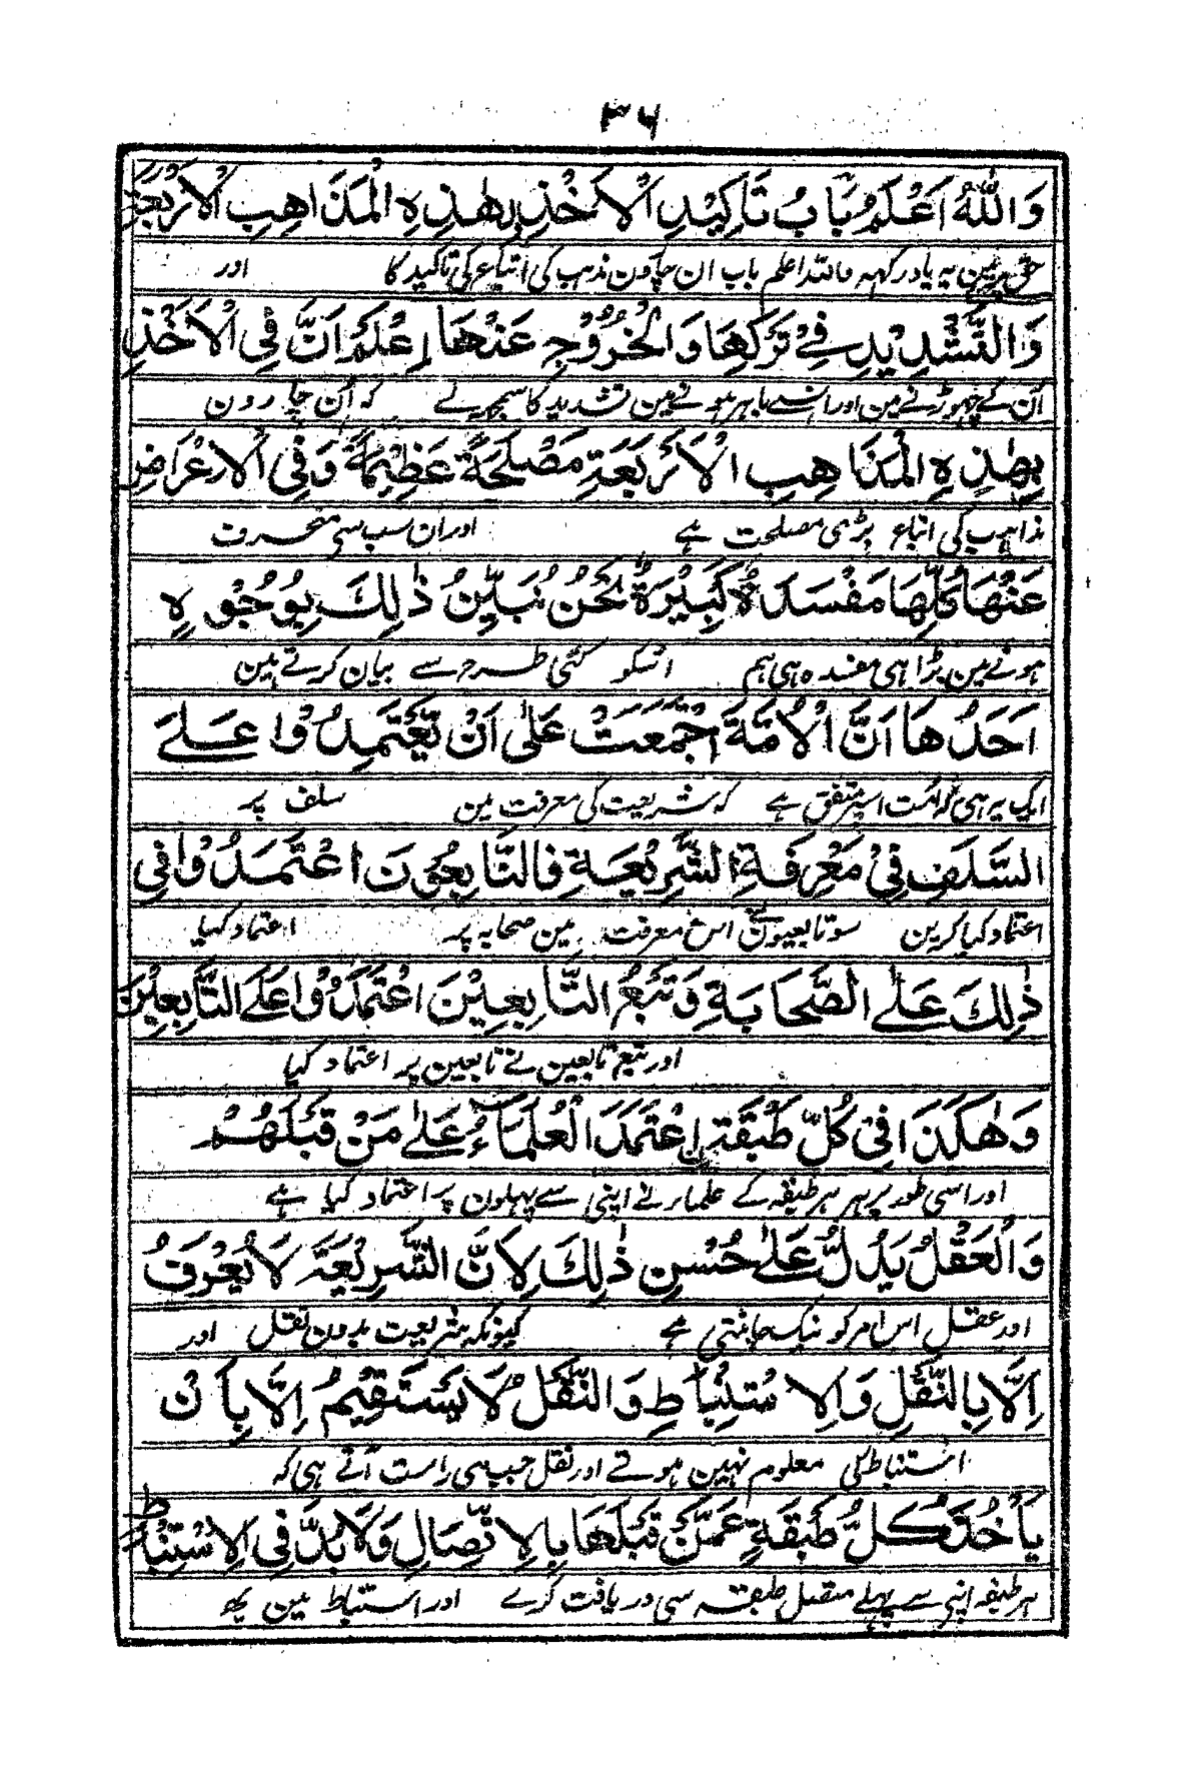 ۳۶
وَاللّٰهُ اَعْلَمُ بَابُ تَاكِيْدِ الْاَخْذِ بِهٰذِهِ الْمَذَاهِبِ الْاَرْبَعَةِ
یہ یاد رکہہ واللہ اعلم باب ان چارون مذہب کی اتباع کی تاکید کا اور
وَالتَّشْدِيْدِ فِيْ تَرْكِهَا وَالْخُرُوْجِ عَنْهَا اِعْلَمْ اَنَّ فِي الْاَخْذِ
اُن کے چہوڑنے مین اور انسے باہر ہونے مین تشدید کا سمجہہ لے کہ اُن چارون
بِهٰذِهِ الْمَذَاهِبِ الْاَرْبَعَةِ مَصْلَحَةً عَظِيْمَةً وَفِي الْاِعْرَاضِ
مذاہب کی اتباع بڑی مصلحت ہے اور ان سب سی منحرف
عَنْهَا كُلِّهَا مَفْسَدَةً كَبِيْرَةً نَحْنُ نُبَيِّنُ ذٰلِكَ بِوُجُوْهٍ
ہونے مین بڑا ہی مفسدہ ہی ہم اسکو کئی طرح سے بیان کرتے ہین
اَحَدُهَا اَنَّ الْاُمَّةَ اجْتَمَعَتْ عَلٰى اَنْ يَّعْتَمِدُوْا عَلَے
ایک یہ ہی کہ امت اسپر متفق ہے کہ شریعت کی معرفت مین سلف پر
السَّلَفِ فِيْ مَعْرِفَةِ الشَّرِيْعَةِ فَالتَّابِعُوْنَ اعْتَمَدُوْا فِي
اعتماد کیا کرین سو تابعیون نے اس معرفت مین صحابہ پر اعتماد کیا
ذٰلِكَ عَلَے الصَّحَابَةِ وَتَبَعُ التَّابِعِيْنَ اعْتَمَدُوْا عَلَے التَّابِعِيْنَ
اور تبع تابعین نے تابعین پر اعتماد کیا
وَهٰكَذَا فِيْ كُلِّ طَبَقَةٍ اِعْتَمَدَ الْعُلَمَاءُ عَلٰے مَنْ قَبْلَهُمْ
اور اسی طور پر ہر طبقہ کے علماء نے اپنی سے پہلون پر اعتماد کیا ہے
وَالْعَقْلُ يَدُلُّ عَلٰے حُسْنِ ذٰلِكَ لِاَنَّ الشَّرِيْعَةَ لَا يُعْرَفُ
اور عقل اس امر کو نیک جانتی ہے کیونکہ شریعت بدون نقل اور
اِلَّا بِالنَّقْلِ وَالْاِسْتِنْبَاطِ وَالنَّقْلُ لَا يَسْتَقِيْمُ اِلَّا بِاَنْ
استنباط کی معلوم نہین ہوتے اور نقل جب ہی راست آتے ہی کہ
يَاْخُذَ كُلُّ طَبَقَةٍ عَمَّنْ قَبْلَهَا بِالْاِتِّصَالِ وَلَا بُدَّ فِي الْاِسْتِنْبَاطِ
ہر طبقہ اپنی سے پہلے متصل طبقہ سی دریافت کرے اور استنباط مین یہ